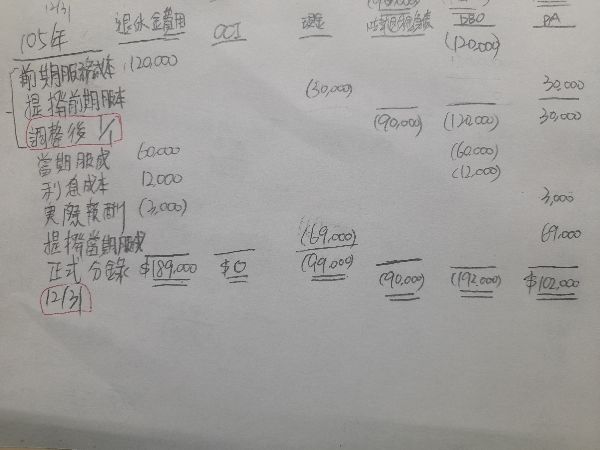 12/31
105年 退休金費用 OCI 現金 DBO PA
前期服務成本 120,000 (120,000)
提撥前期服本 (30,000) 30,000
調整後 1/1 (90,000) (120,000) 30,000
當期服成 60,000 (60,000)
利息成本 12,000 (12,000)
實際報酬 (3,000) 3,000
提撥當期服成 (69,000) 69,000
正式分錄 $189,000 $0 (99,000) (90,000) (192,000) $102,000
12/31